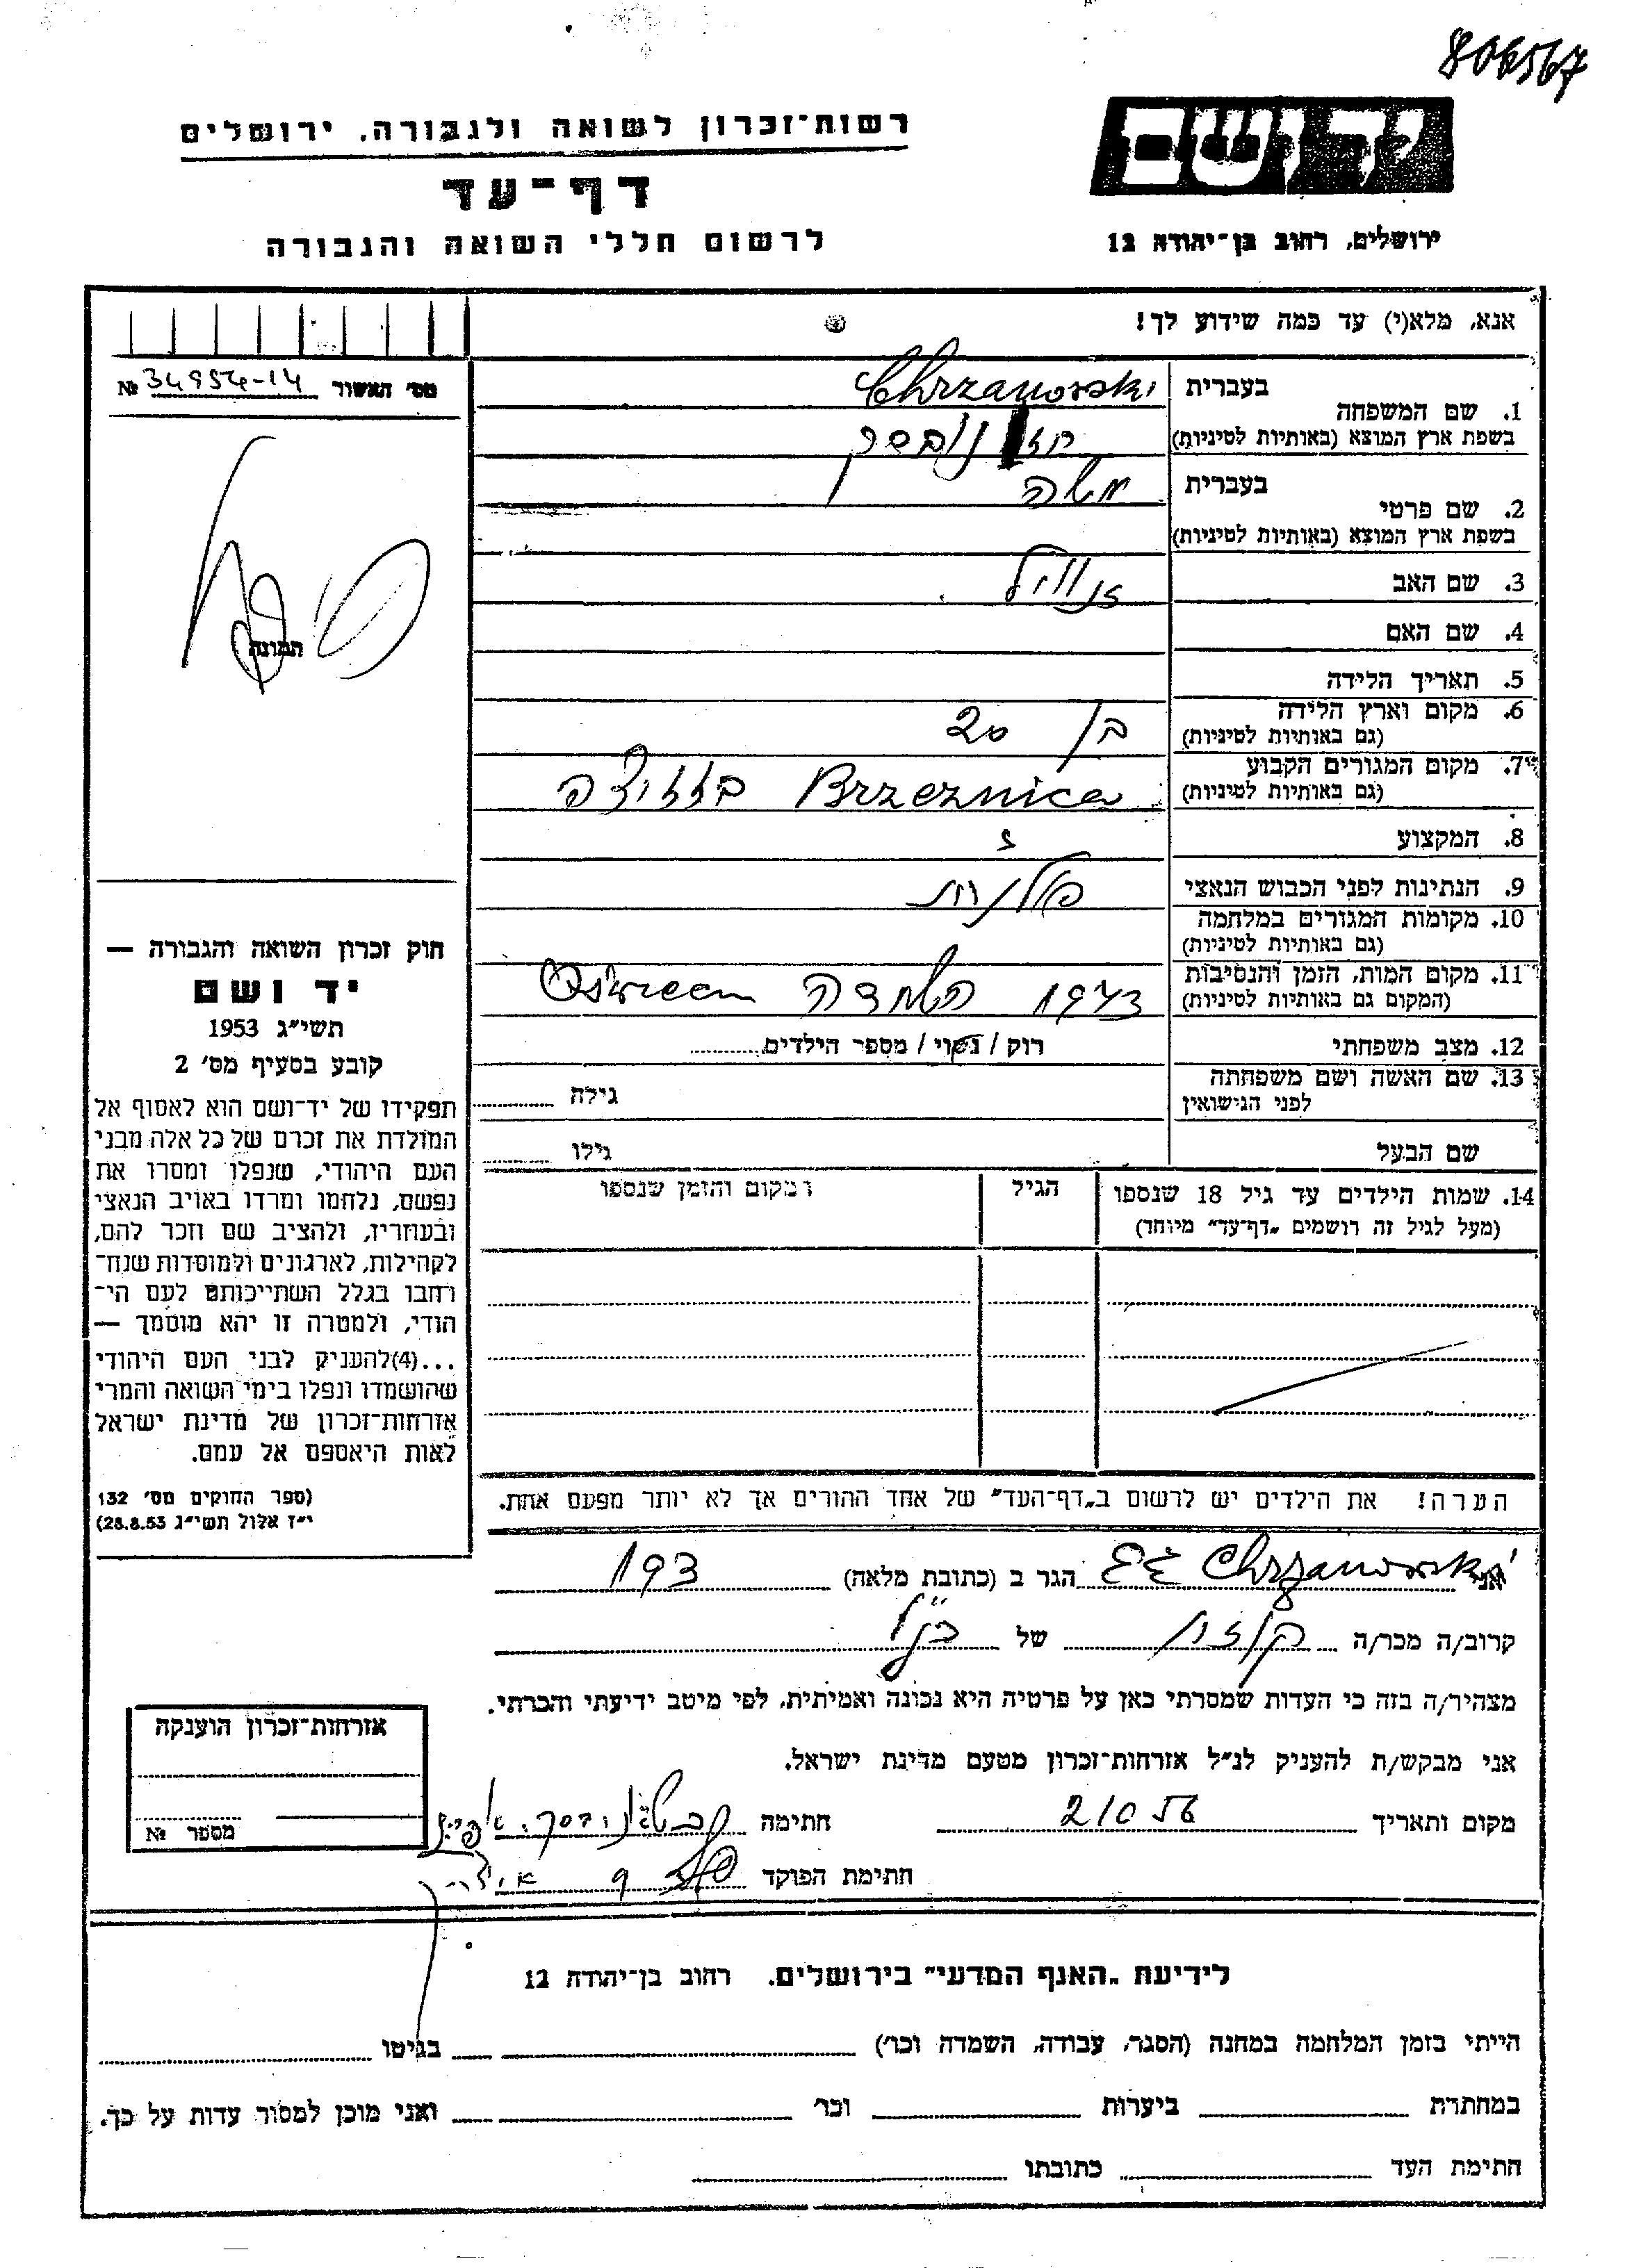 806567
יד ושם
רשות־זכרון לשואה ולגבורה, ירושלים
דף־עד
ירושלים, רחוב בן־יהודה 12
לרשום חללי השואה והגבורה
אנא, מלא(י) עד כמה שידוע לך!
מס׳ האשור 34954-14 №
תמונה
1. שם המשפחה
בעברית Chrzanowski
בשפת ארץ המוצא (באותיות לטיניות)
2. שם פרטי
בעברית משה
בשפת ארץ המוצא (באותיות לטיניות)
3. שם האב זנוויל
4. שם האם
5. תאריך הלידה
6. מקום וארץ הלידה
(גם באותיות לטיניות) בן 20
7. מקום המגורים הקבוע
(גם באותיות לטיניות) Brzeznica
8. המקצוע
9. הנתינות לפני הכבוש הנאצי פולנית
10. מקומות המגורים במלחמה
(גם באותיות לטיניות)
11. מקום המות, הזמן והנסיבות
(המקום גם באותיות לטיניות) 1943 השמדה
12. מצב משפחתי רוק / נשוי / מספר הילדים
13. שם האשה ושם משפחתה
לפני הנישואין גילה
שם הבעל גילו
14. שמות הילדים עד גיל 18 שנספו
(מעל לגיל זה רושמים „דף־עד״ מיוחד)
הגיל
המקום והזמן שנספו
חוק זכרון השואה והגבורה —
יד ושם
תשי״ג 1953
קובע בסעיף מס׳ 2
תפקידו של יד־ושם הוא לאסוף אל
המולדת את זכרם של כל אלה מבני
העם היהודי, שנפלו ומסרו את
נפשם, נלחמו ומרדו באויב הנאצי
ובעוזריו, ולהציב שם וזכר להם,
לקהילות, לארגונים ולמוסדות שנח־
רחבו בגלל השתייכותם לעם הי־
הודי, ולמטרה זו יהא מוסמך —
...(4)להעניק לבני העם היהודי
שהושמדו ונפלו בימי השואה והמרי
אזרחות־זכרון של מדינת ישראל
לאות היאספם אל עמם.
(ספר החוקים מס׳ 132
י״ז אלול תשי״ג 28.8.53)
הערה! את הילדים יש לרשום ב„דף־העד״ של אחד ההורים אך לא יותר מפעם אחת.
אני Chrzanowski הגר ב (כתובת מלאה)
קרוב/ה מכר/ה של הנ״ל
מצהיר/ה בזה כי העדות שמסרתי כאן על פרטיה היא נכונה ואמיתית, לפי מיטב ידיעתי והכרתי.
אני מבקש/ת להעניק לנ״ל אזרחות־זכרון מטעם מדינת ישראל.
מקום ותאריך חתימה
חתימת הפוקד
אזרחות־זכרון הוענקה
מספר №
לידיעת „האגף המדעי״ בירושלים. רחוב בן־יהודה 12
הייתי בזמן המלחמה במחנה (הסגר, עבודה, השמדה וכו׳) בגיטו
במחתרת ביערות וכו׳ ואני מוכן למסור עדות על כך.
חתימת העד כתובתו